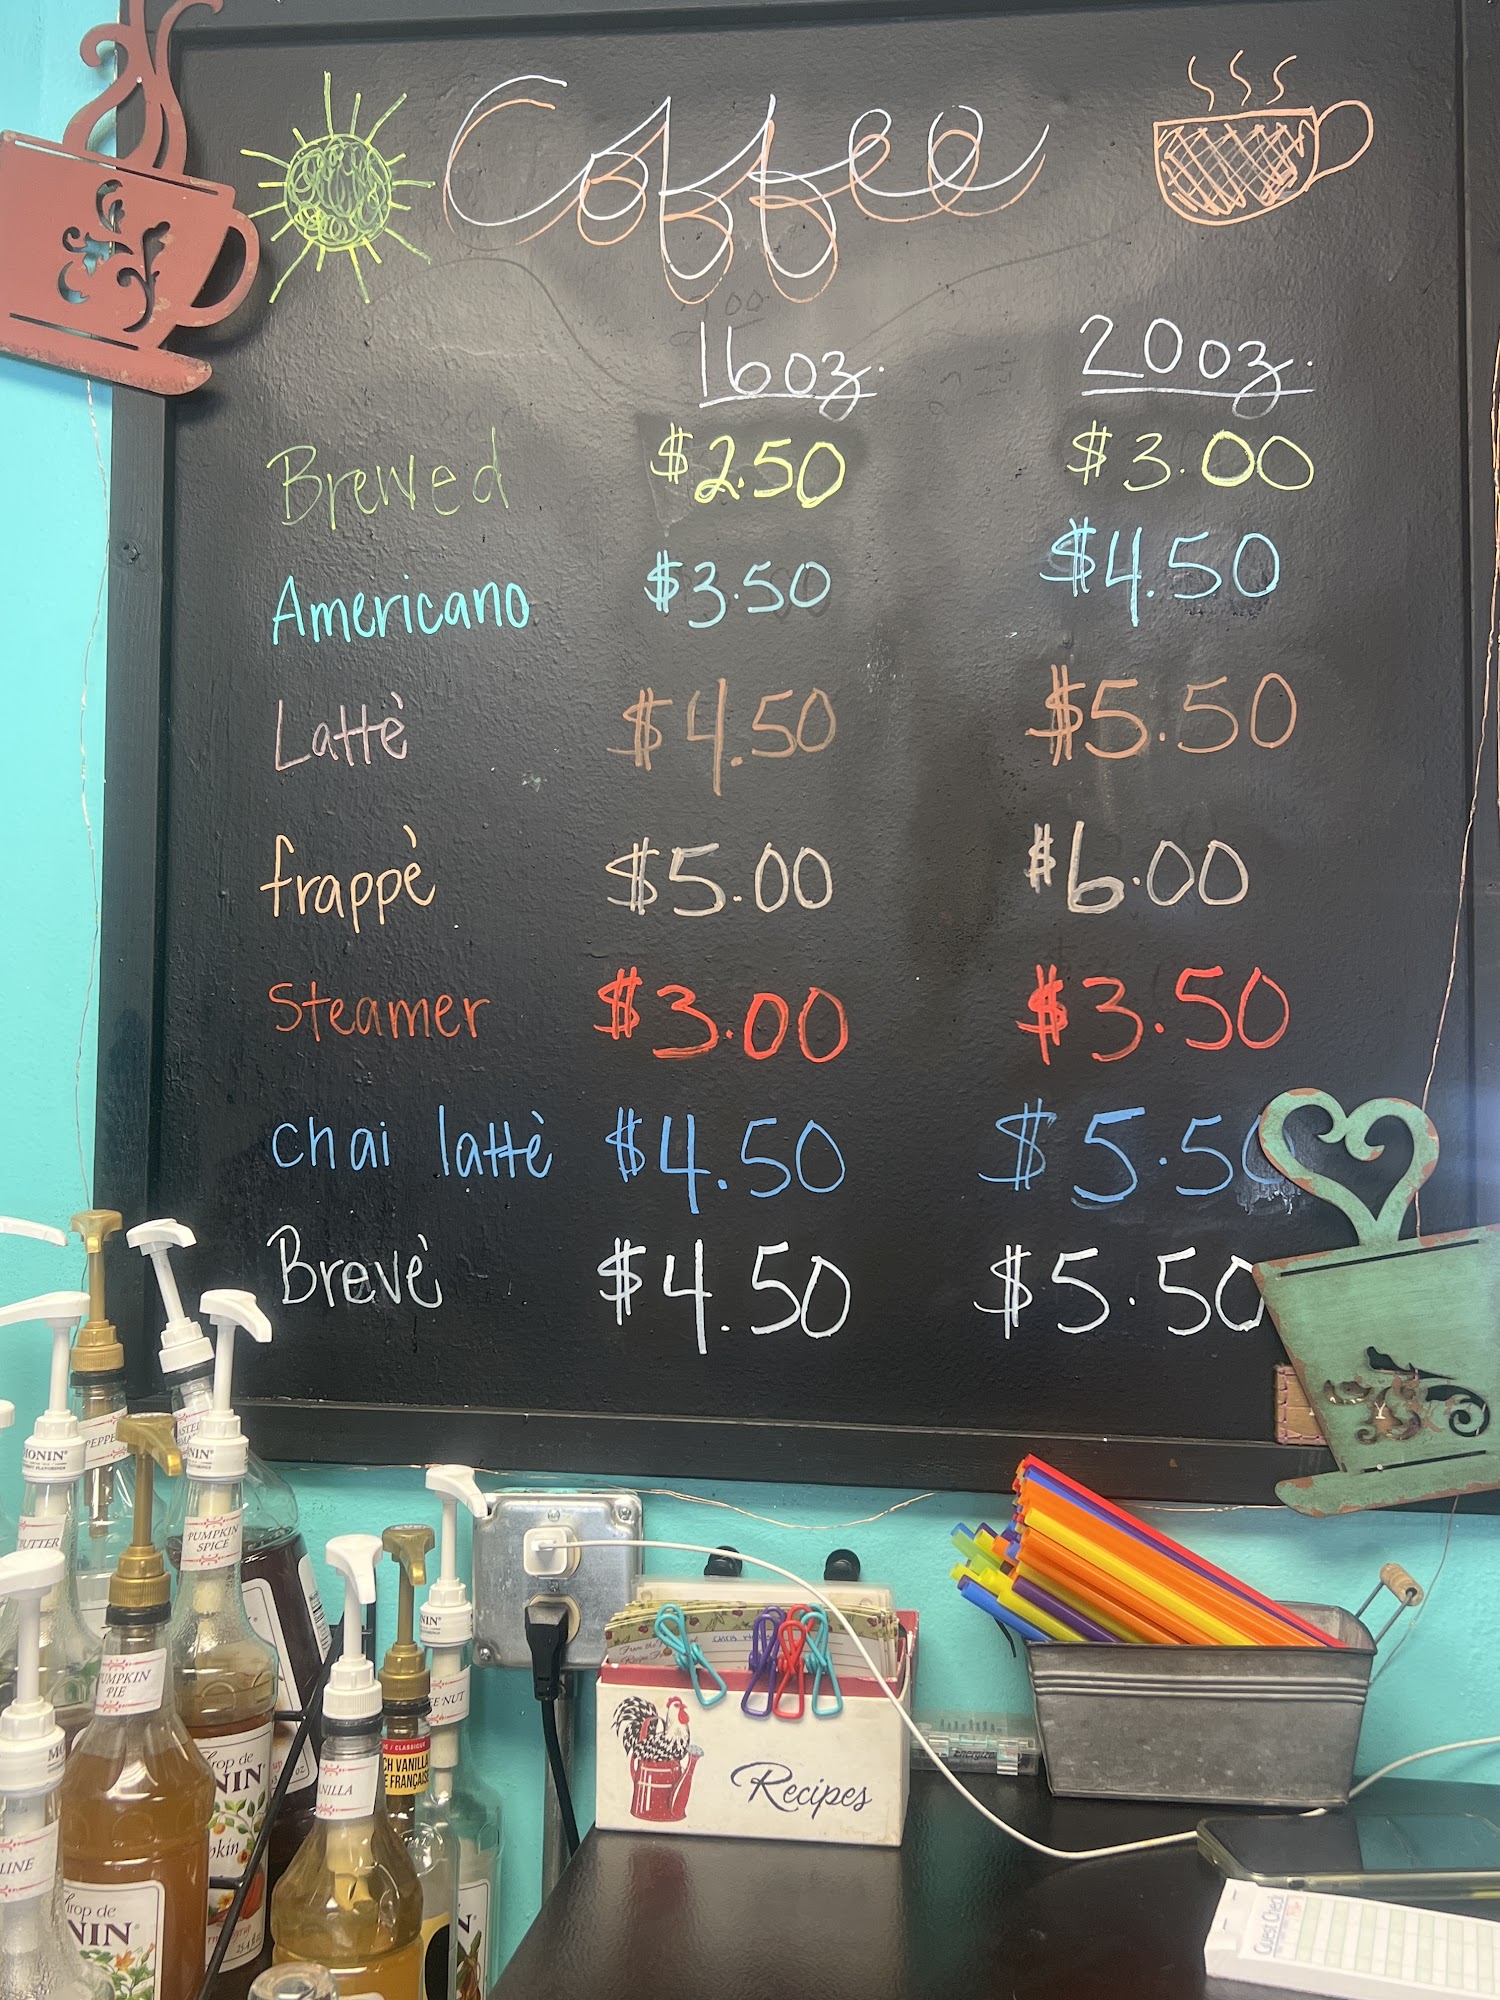 Coffee
16oz. 20oz.
Brewed $2.50 $3.00
Americano $3.50 $4.50
Lattè $4.50 $5.50
frappè $5.00 $6.00
Steamer $3.00 $3.50
chai lattè $4.50 $5.50
Brevè $4.50 $5.50
MONIN
PUMPKIN
SPICE
PUMPKIN
PIE
NIN
NIN
Recipes
Energizer
Guest Check